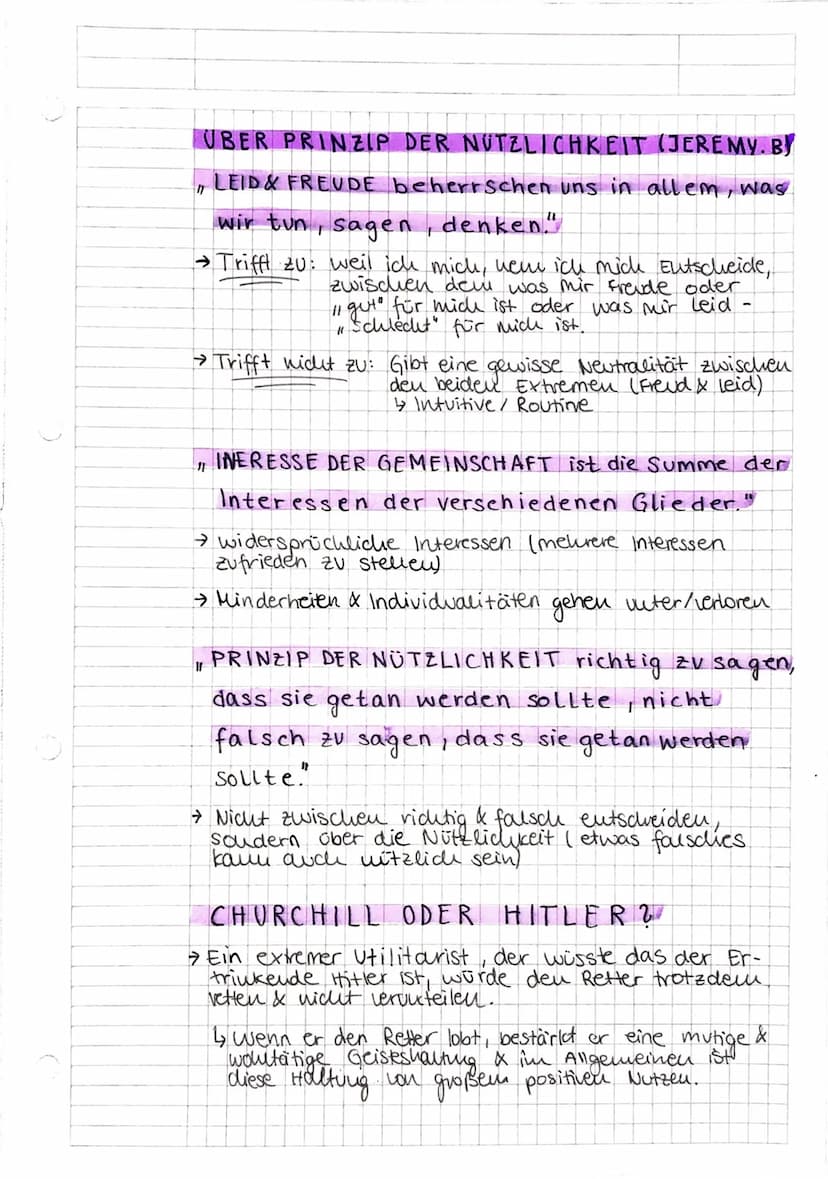 ÜBER PRINZIP DER NÜTZLICHKEIT (JEREMY. B)
„LEID & FREUDE beherrschen uns in allem, was
wir tun, sagen, denken."
→ Trifft zu: weil ich mich, wenn ich mich Entscheide,
zwischen dem was mir Freude oder
„gut" für mich ist oder was mir Leid -
„schlecht" für mich ist.
→ Trifft nicht zu: Gibt eine gewisse Neutralität zwischen
den beiden Extremen (Freud & Leid)
↳ Intuitive / Routine
„INERESSE DER GEMEINSCHAFT ist die Summe der
Interessen der verschiedenen Glieder."
→ widersprüchliche Interessen (mehrere Interessen
zufrieden zu stellen)
→ Minderheiten & Individualitäten gehen unter/verloren
„PRINZIP DER NÜTZLICHKEIT richtig zu sagen,
dass sie getan werden sollte, nicht
falsch zu sagen, dass sie getan werden
sollte."
→ Nicht zwischen richtig & falsch entscheiden,
sondern über die Nützlichkeit (etwas falsches
kann auch nützlich sein)
CHURCHILL ODER HITLER?
→ Ein extremer Utilitarist, der wüsste das der Er-
trinkende Hitler ist, würde den Retter trotzdem
retten & nicht verurteilen.
↳ Wenn er den Retter lobt, bestärkt er eine mutige &
wohltätige Geisteshaltung & im Allgemeinen ist
diese Haltung von großem positiven Nutzen.